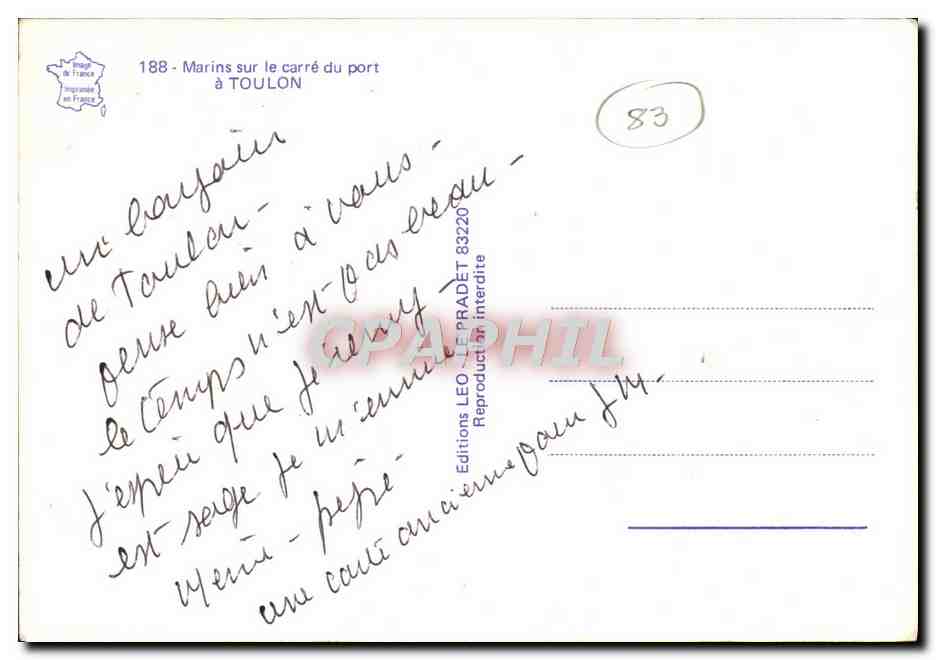 Image
de France
Imprimée
en France
188 - Marins sur le carré du port
à TOULON
83
un bonjour
de Toulon -
pense bien à vous -
le temps n'est pas beau -
j'espère que Jérémy -
est sage je m'ennuie
Mémé - pépé -
une carte ancienne pour J M -
Editions LEO - LE PRADET 83220
Reproduction interdite
CPAPHIL